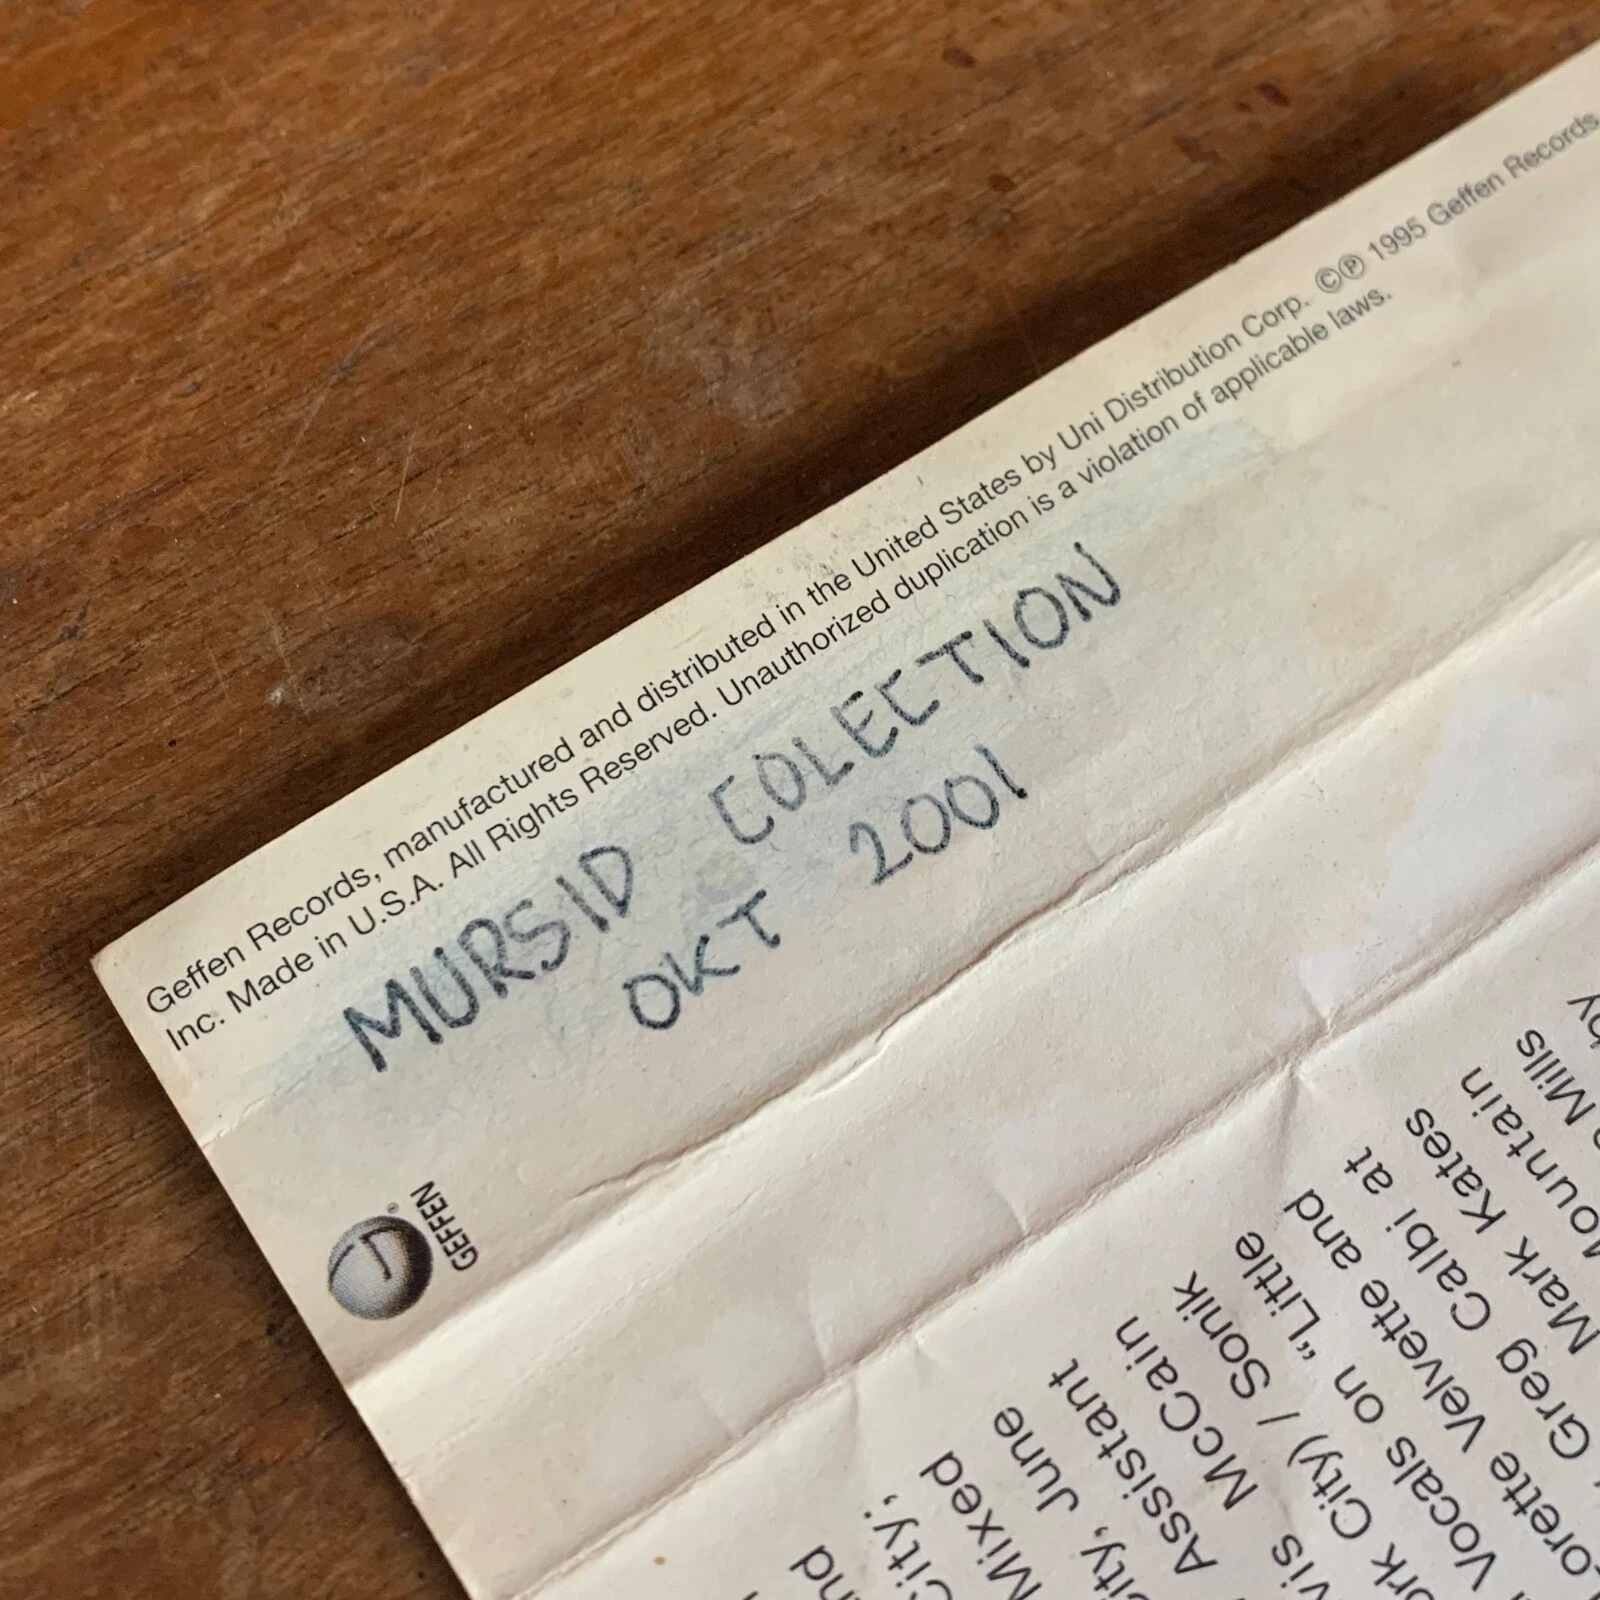 Geffen Records, manufactured and distributed in the United States by Uni Distribution Corp. ©℗ 1995 Geffen Records,
Inc. Made in U.S.A. All Rights Reserved. Unauthorized duplication is a violation of applicable laws.
MURSID COLECTION
OKT 2001
GEFFEN
®
by
Mills
Mountain
Mark Kates
Greg Calbi at
Velvette and
Vocals on "Little
City) / Sonik
McCain
Assistant
June
Mixed
City;